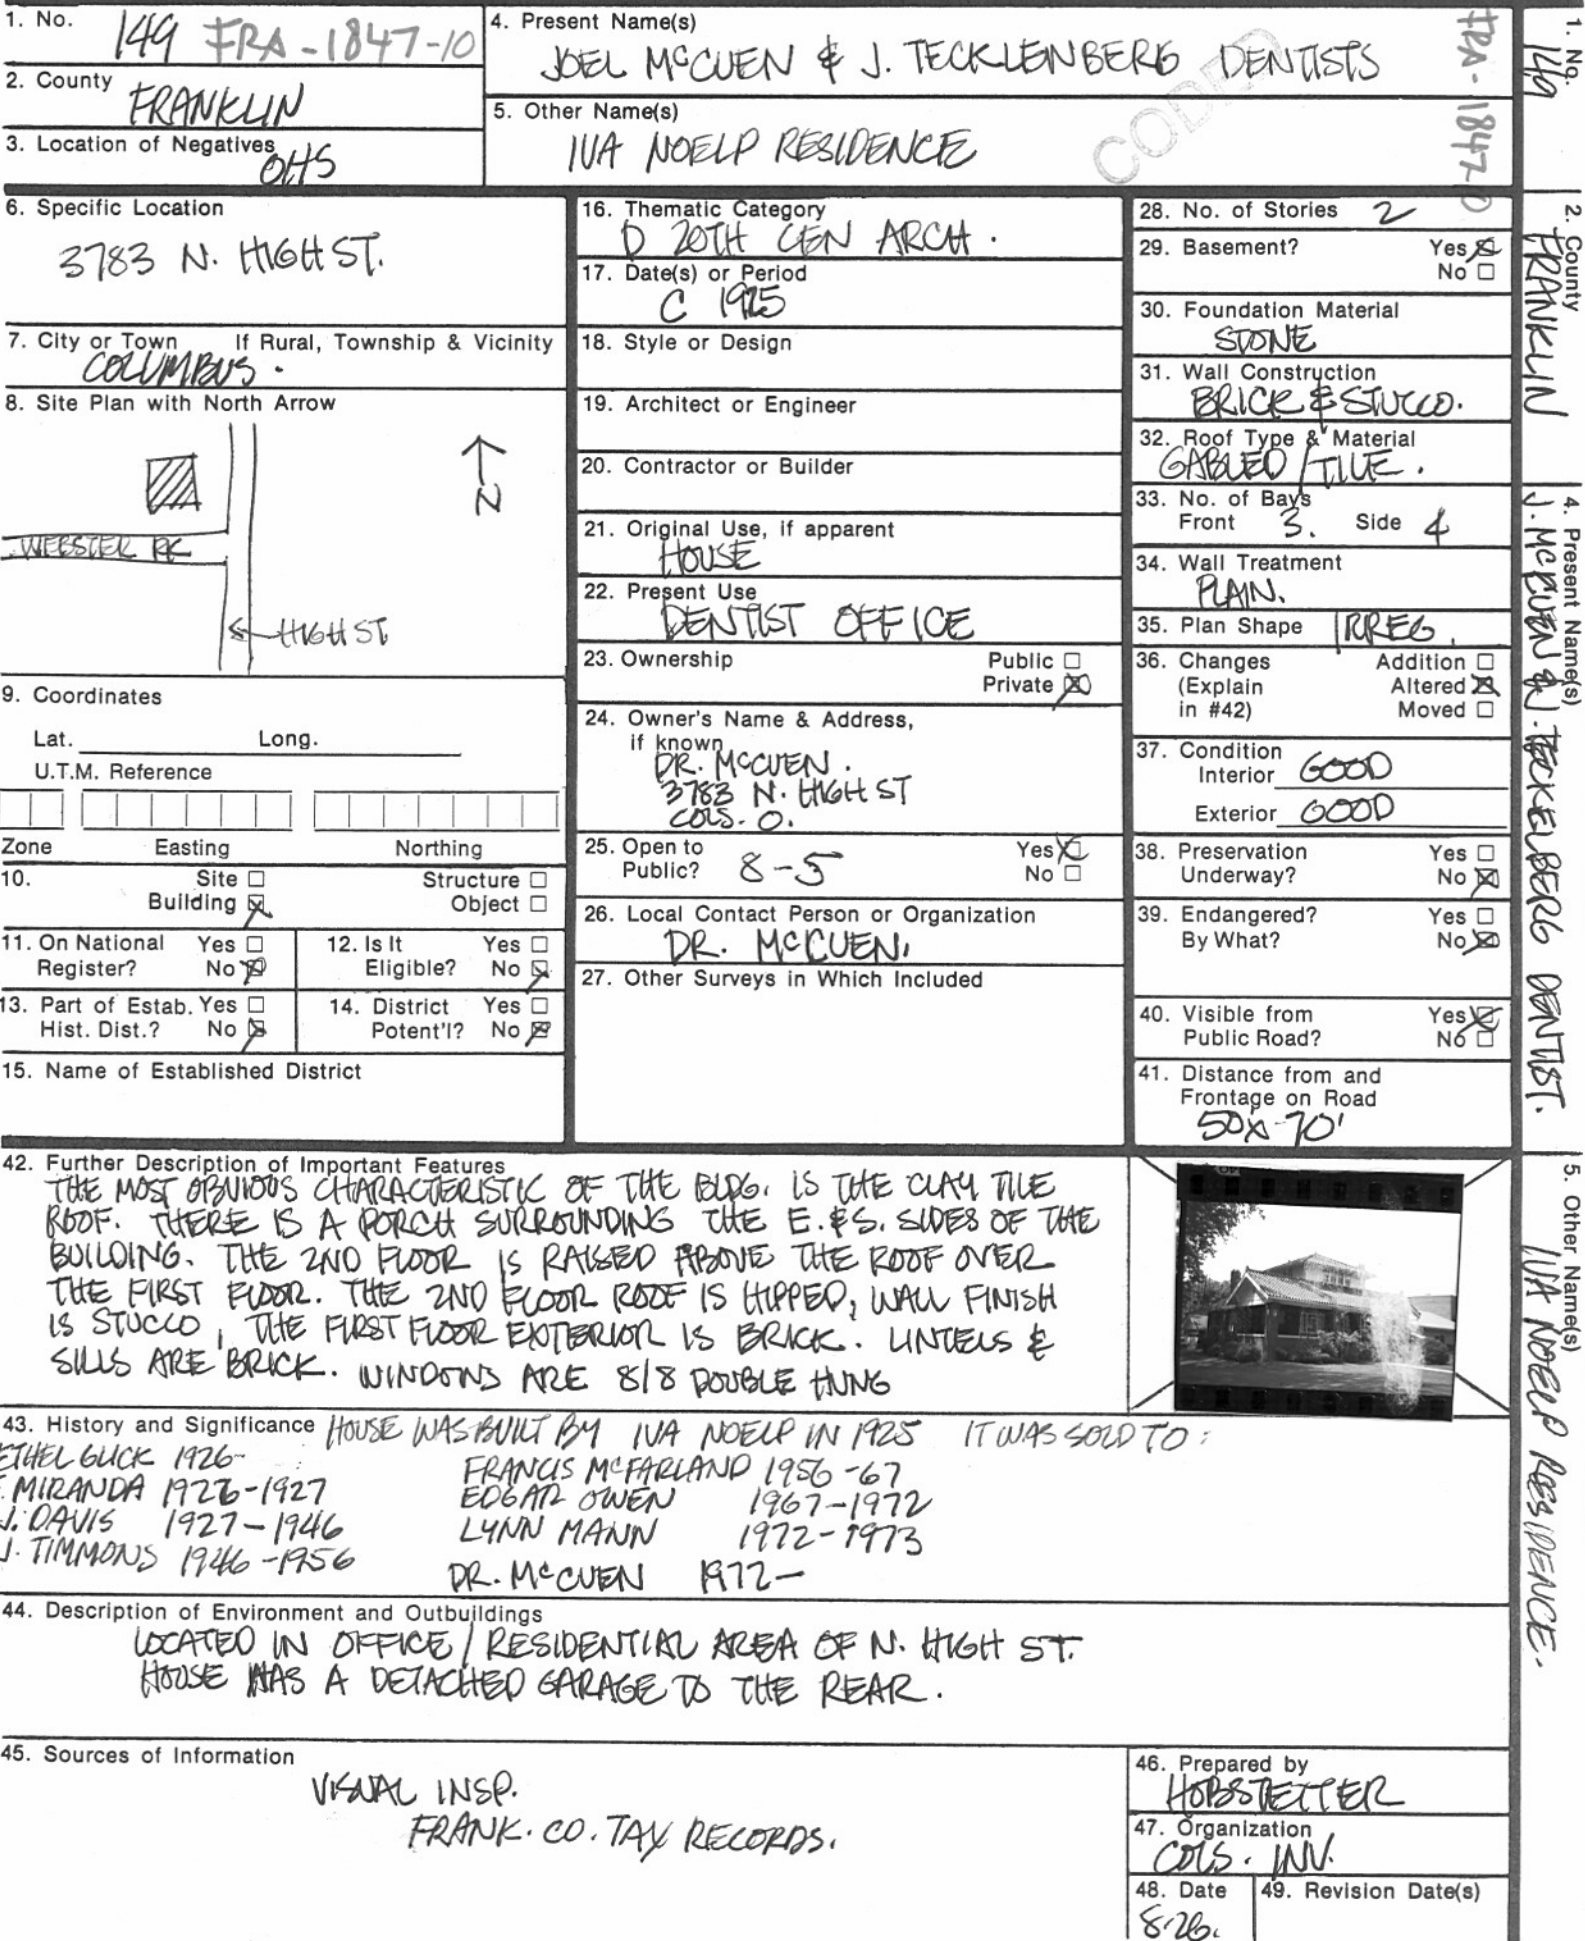 1. No.
149 FRA-1847-10
2. County
FRANKLIN
3. Location of Negatives
OHS
4. Present Name(s)
JOEL McCUEN & J. TECKLENBERG DENTISTS
5. Other Name(s)
IVA NOELP RESIDENCE
CODED
FRA-1847-10
6. Specific Location
3783 N. HIGH ST.
7. City or Town If Rural, Township & Vicinity
COLUMBUS.
8. Site Plan with North Arrow
N
WEBSTER PK
HIGH ST
9. Coordinates
Lat. Long.
U.T.M. Reference
Zone Easting Northing
10. Site Structure
Building Object
11. On National Yes
Register? No
12. Is It Yes
Eligible? No
13. Part of Estab. Yes
Hist. Dist.? No
14. District Yes
Potent'l? No
15. Name of Established District
16. Thematic Category
D 20TH CEN ARCH.
17. Date(s) or Period
C 1925
18. Style or Design
19. Architect or Engineer
20. Contractor or Builder
21. Original Use, if apparent
HOUSE
22. Present Use
DENTIST OFFICE
23. Ownership Public
Private
24. Owner's Name & Address,
if known
DR. McCUEN.
3783 N. HIGH ST
COLS. O.
25. Open to Yes
Public? 8-5 No
26. Local Contact Person or Organization
DR. McCUEN.
27. Other Surveys in Which Included
28. No. of Stories 2
29. Basement? Yes
No
30. Foundation Material
STONE
31. Wall Construction
BRICK & STUCCO.
32. Roof Type & Material
GABLED / TILE.
33. No. of Bays
Front 3. Side 4
34. Wall Treatment
PLAIN.
35. Plan Shape IRREG.
36. Changes Addition
(Explain Altered
in #42) Moved
37. Condition
Interior GOOD
Exterior GOOD
38. Preservation Yes
Underway? No
39. Endangered? Yes
By What? No
40. Visible from Yes
Public Road? No
41. Distance from and
Frontage on Road
50x 70'
42. Further Description of Important Features
THE MOST OBVIOUS CHARACTERISTIC OF THE BLDG. IS THE CLAY TILE
ROOF. THERE IS A PORCH SURROUNDING THE E. & S. SIDES OF THE
BUILDING. THE 2ND FLOOR IS RAISED ABOVE THE ROOF OVER
THE FIRST FLOOR. THE 2ND FLOOR ROOF IS HIPPED, WALL FINISH
IS STUCCO, THE FIRST FLOOR EXTERIOR IS BRICK. LINTELS &
SILLS ARE BRICK. WINDOWS ARE 8/8 DOUBLE HUNG
43. History and Significance HOUSE WAS BUILT BY IVA NOELP IN 1925 IT WAS SOLD TO:
ETHEL GLICK 1926-
MIRANDA 1926-1927
J. DAVIS 1927-1946
J. TIMMONS 1946-1956
FRANCIS McFARLAND 1956-67
EDGAR OWEN 1967-1972
LYNN MANN 1972-1973
DR. McCUEN 1972-
44. Description of Environment and Outbuildings
LOCATED IN OFFICE / RESIDENTIAL AREA OF N. HIGH ST.
HOUSE HAS A DETACHED GARAGE TO THE REAR.
45. Sources of Information
VISUAL INSP.
FRANK. CO. TAX RECORDS.
46. Prepared by
HOBSTETTER
47. Organization
COLS. INV.
48. Date
8.26.
49. Revision Date(s)
1. No.
149
2. County
FRANKLIN
4. Present Name(s)
J. McCUEN & J. TECKELBERG DENTIST.
5. Other Name(s)
IVA NOELP RESIDENCE.